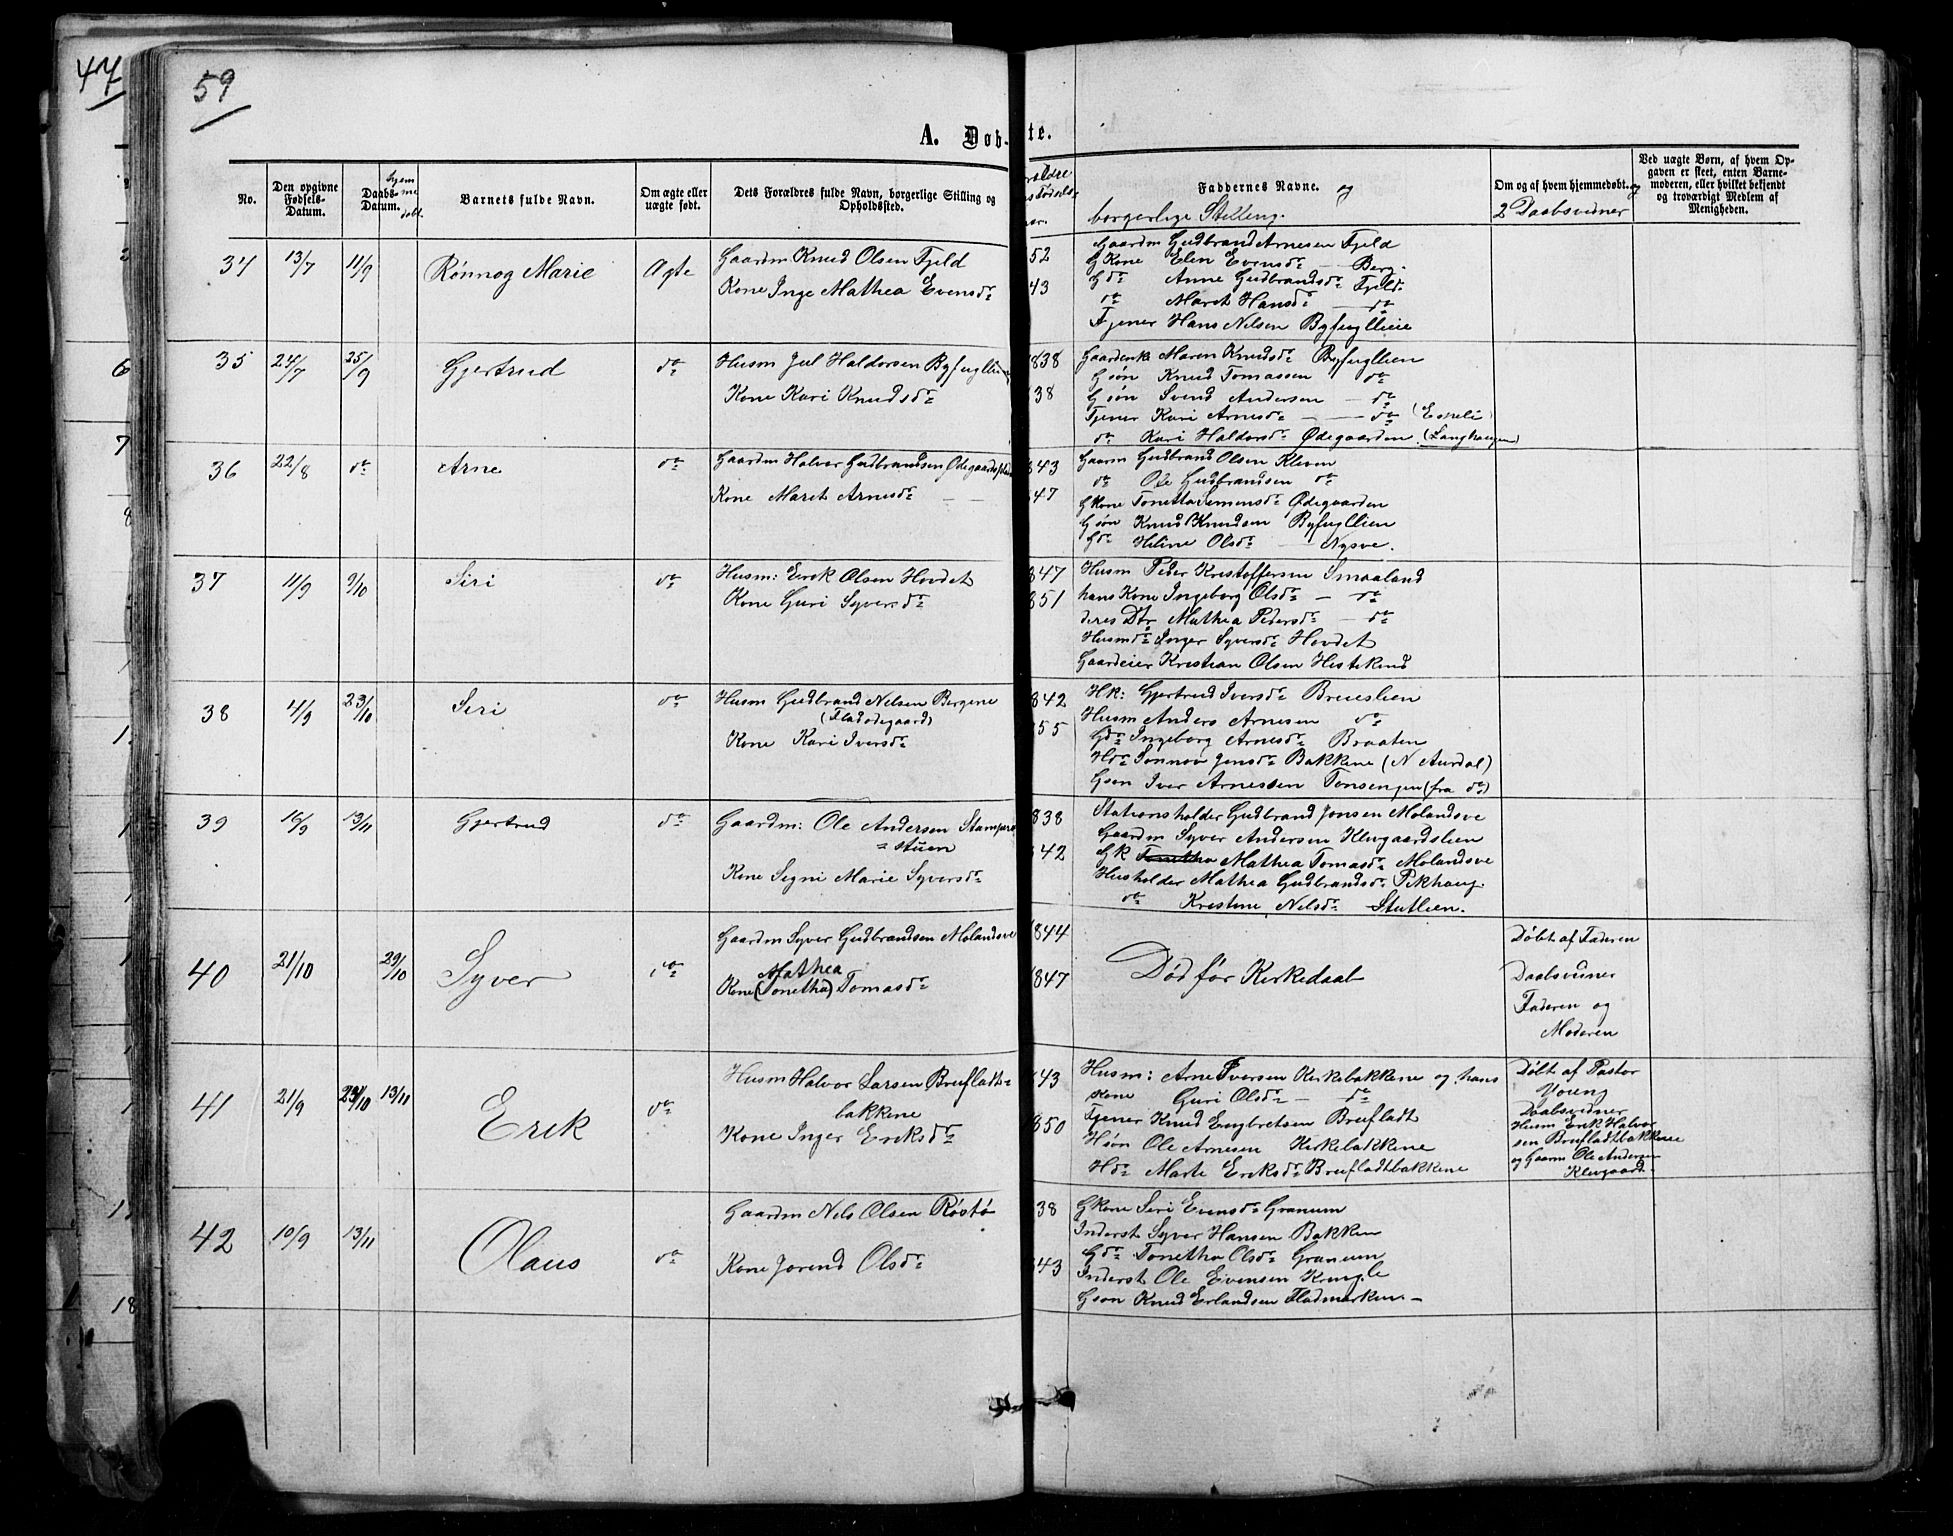 47
59
A. Døb-
te.
No.
Den opgivne Fødsels-Datum.
Daabs-Datum.
Hjemme dobt.
Barnets fulde Navn.
Om ægte eller uægte født.
Dets Forældres fulde Navn, borgerlige Stilling og Opholdssted.
Faddernes Navne. og
borgerlige Stilling.
Om og af hvem hjemmedøbt. og
2 Daabsvidner
Ved uægte Børn, af hvem Opgaven er skeet, enten Barnemoderen, eller hvilket bekjendt og troværdigt Medlem af Menigheden.
34 13/7 11/9 Rønnog Marie Ægte
Gaardm Knud Olsen Fjeld
Kone Inge Mathea Evensdr
52
43
Gaardm Gudbrand Arnesen Fjeld
Gkone Elen Evensdr — Berg.
Gdr Anne Gudbrandsdr Fjeld
do Marit Hansdr — do
Tjener Hans Nilsen Byfugllien
35 24/7 25/9 Gjertrud do
Husm Jul Haldorsen Byfugllien
Kone Kari Knudsdr
838
38
Gaardenk Maren Knudsdr Byfugllien
Gsøn Knud Tomassen do
Gsøn Svend Andersen — do
Tjener Kari Arnesdr — — do (Espeli)
do Kari Haldorsdr Ødegaarden (Langhaugen)
36 22/8 do Arne do
Gaardm Halvor Gudbrandsen Ødegaards
Kone Marit Arnesdr — —
843
847
Gaarm Gudbrand Olsen Kleven
do Ole Gudbrandsen do
Gkone Tonetta Simensdr Ødegaarden
Gsøn Knud Knudsen Byfugllien
Gdr Heline Olsdr — Nysve.
37 11/9 9/10 Siri do
Husm: Erik Olsen Hovdet
Kone Guri Syversdr
847
851
Husm Peder Kristoffersen Smaaland
hans Kone Ingeborg Olsdr — do
deres Dtr Mathea Pedersdr — do
Husmdr Inger Syversdr Hovdet
Gaardeier Kristian Olsen Hestekind
38 4/9 23/10 Siri do
Husm Gudbrand Nelsen Bergene
(Fladødegaard)
Kone Kari Iversdr
842
855
Hk: Gjertrud Iversdr Brueslien
Husm Anders Arnesen do
Gdr Ingeborg Arnesdr Braaten
Hdr Sønnøv Jensdr Bakkene (N Aurdal)
Gsøn Iver Arnessen Tonsengen (fra do)
39 16/9 13/11 Gjertrud do
Gaardm: Ole Andersen Stampe
= stuen
Kone Segni Marie Syversdr
838
842
Stationsholder Gudbrand Jonsen Molandsve
Gaardm Syver Andersen Klevgaardslien
Gk Tonetha Mathea Tomasdr Molandsve
Husholder Mathea Gudbrandsdr Pikhaug.
do Kristine Nilsdr Stutlien.
40 21/10 29/10 Syver do
Gaardm Syver Gudbrandsen Molandsve
Mathea
Kone (Tonetha) Tomasdr
844
847
Død før Kirkedaab
Døbt af Faderen
Daabsvidner
Faderen og
Moderen
41 21/9 23/10 13/11 Erik do
Husm Halvor Larsen Brufladt=
bakkene
Kone Inger Eriksdr
843
850
Husm: Arne Iversen Kirkebakkene og hans
Kone Guri Olsdr — do
Tjener Knud Engbretsen Brufladt
Hsøn Ole Arnesen Kirkebakkene
Hdr Marte Eriksdr Brufladtbakkene
Døbt af Pastor
Daabsvidner
Husm Erik Halvor
sen Brufladtbakkene
og Gaarm Ole Andersen
Klevgaard
42 10/9 13/11 Olaus do
Gaardm Nils Olsen Røstø
Kone Jorend Olsdr
38
843
Gkone Siri Evensdr Granum
Inderst Syver Hansen Bakken
Gdr Tonetha Olsdr Granum
Inderst Ole Evensen Kringle
Gsøn Knud Erlandsen Fladmarken —